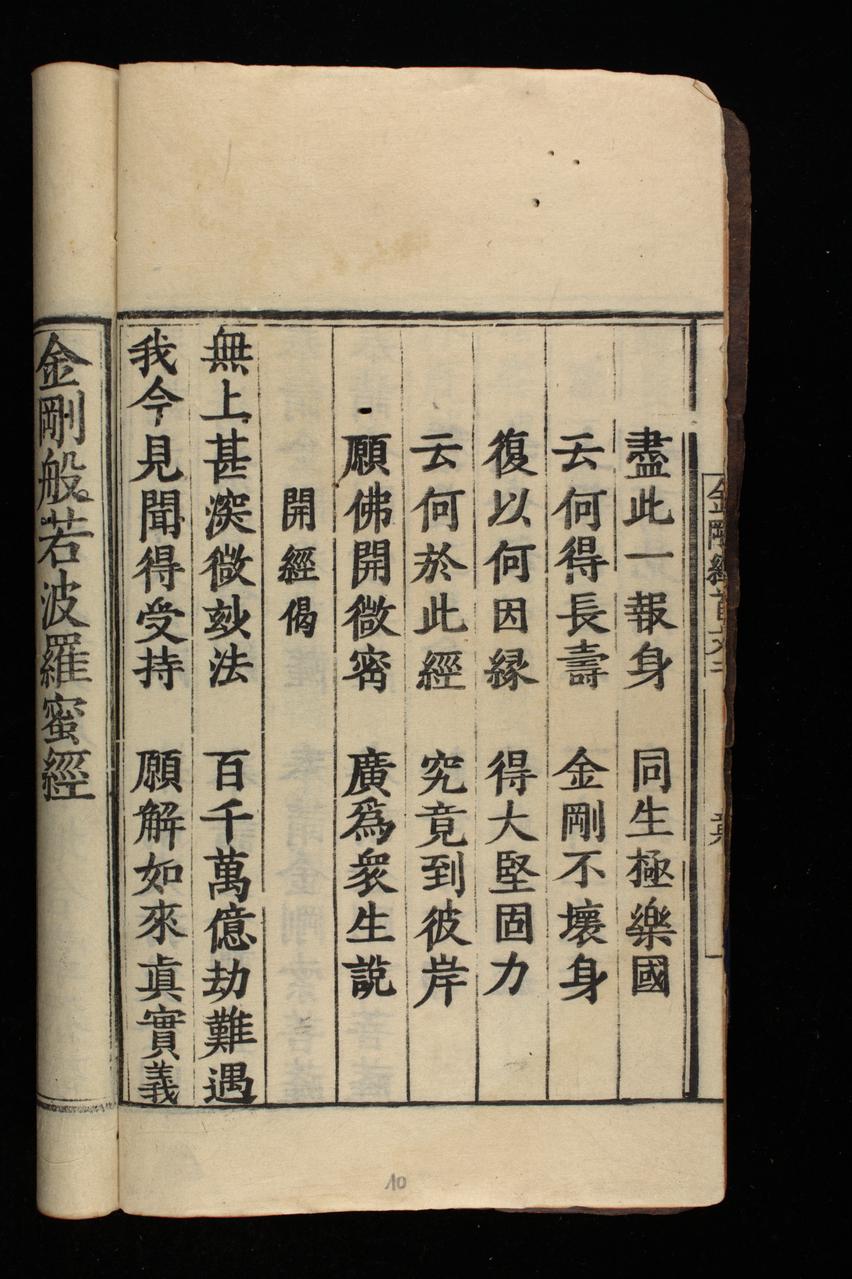 金剛經
盡此一報身　同生極樂國
云何得長壽　金剛不壞身
復以何因緣　得大堅固力
云何於此經　究竟到彼岸
願佛開微宻　廣爲衆生說
開經偈
無上甚深微妙法　百千萬億劫難遇
我今見聞得受持　願解如來眞實義
金剛般若波羅蜜經
10